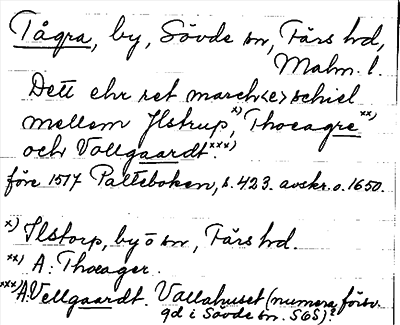 Tågra, by, Sövde sn, Färs hd,
Malm. l.
Dett ehr ret march<e>schiel
mellem Jlstrup,x) Thoeagrexx)
och Vollgaardt.xxx)
före 1517 Palteboken, s. 423. avskr. o. 1650.
x) Ilstorp, by o sn, Färs hd.
xx) A: Thoeager.
xxx) A: Vellgaardt. Vallahuset (numera försv.
gd i Sövde sn. SGS)?